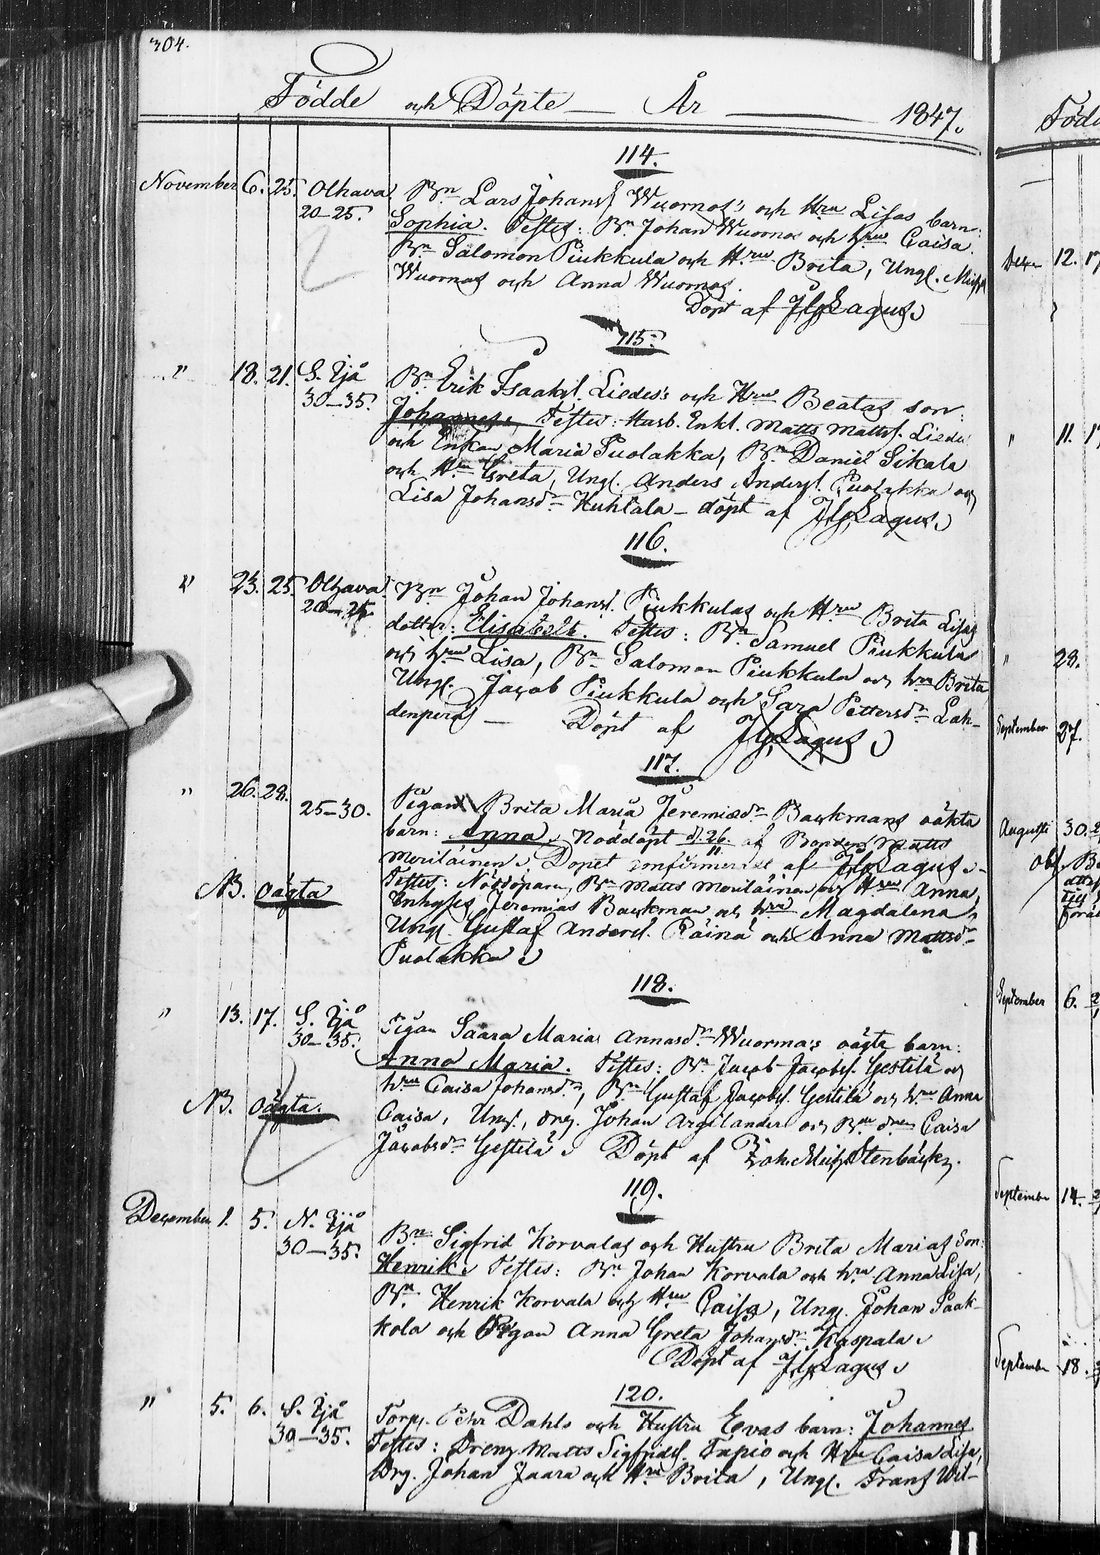 304.
Födde och Döpte — År — 1847.
114.
November 6. 25. Olhava Bn Lars Johans Wuornos's och Hru Lisas barn:
20–25. Sophia. Testes: Bn Johan Wuornos och hru Caisa
Bn Salomon Piukkula och Hru Brita, Ungl.
Wuornos och Anna Wuornos.
Döpt af Lagus
115.
" 18. 21. S. Ijå Bn Erik Isaaks. Liedes's och Hru Beatas son:
30–35. Johannes. Testes: Husb. Enkl. Matts Matts. Liedes
och Enkan Maria Puolakka, Bn Daniel Sikala
och Hru Greta, Ungl. Anders Anders. Puolakka och
Lisa Johansdr Huhtala – döpt af Lagus
116.
" 23. 25. Olhava Bn Johan Johans. Piukkulas och Hru Brita Lisas
20–25. dotter: Elisabeth. Testes: Bn Samuel Piukkula
och hru Lisa, Bn Salomon Piukkula och hru Brita
Ungl. Jacob Piukkula och Sara Pettersdr Lah-
denperä – Döpt af Lagus
117.
" 26. 28. Pigan Brita Maria Jeremiædr Backmans oäkta
25–30. barn: Anna. Nöddöpt d. 26/11 af Bonden Matts
Moriläinen. Dopet confirmerat af Lagus.
Testes: Nöddöparn, Bn Matts Moriläinen och Hru Anna,
NB. Oägta Inhyses Jeremias Backman och hru Magdalena,
Ungl. Gustaf Anders. Räinä och Anna Mattsdr
Puolakka
118.
" 13. 17. S. Ijå Pigan Saara Maria Annasdr Wuorma's oägte barn:
30–35. Anna Maria. Testes: Bn Jacob Jacobs. Gestilä och
hru Caisa Johansdr, Bn Gustaf Jacobs. Gestilä och hru Anna
NB. Oägta. Caisa, Ungl., dreg. Johan Argilander och Caisa
Jacobsdr Gestilä. Döpt af Joh. Mich. Stenbäck.
119.
December 1. 5. N. Ijå Bn Sigfrid Korvalas och Hustru Brita Marias Son:
30–35. Henrik. Testes: Bn Johan Korvala och hru Anna Lisa,
Bn Henrik Korvala och Hru Caisa, Ungl. Johan Paak-
kola och Pigan Anna Greta Johansdr Kaspala.
Döpt af Lagus
120.
" 5. 6. S. Ijå Torp. Pehr Dahls och Hustru Evas barn: Johannes
30–35. Testes: Dreng Matts Sigfrids. Tapio och Hru Caisa Lisa,
Drg. Johan Jaara och Hru Brita, Ungl. Frans Wil-
Födde
Decem 12. 17
" 11. 17
" 28.
September 27.
Augusti 30. 2
September 6.
September 14.
September 18.